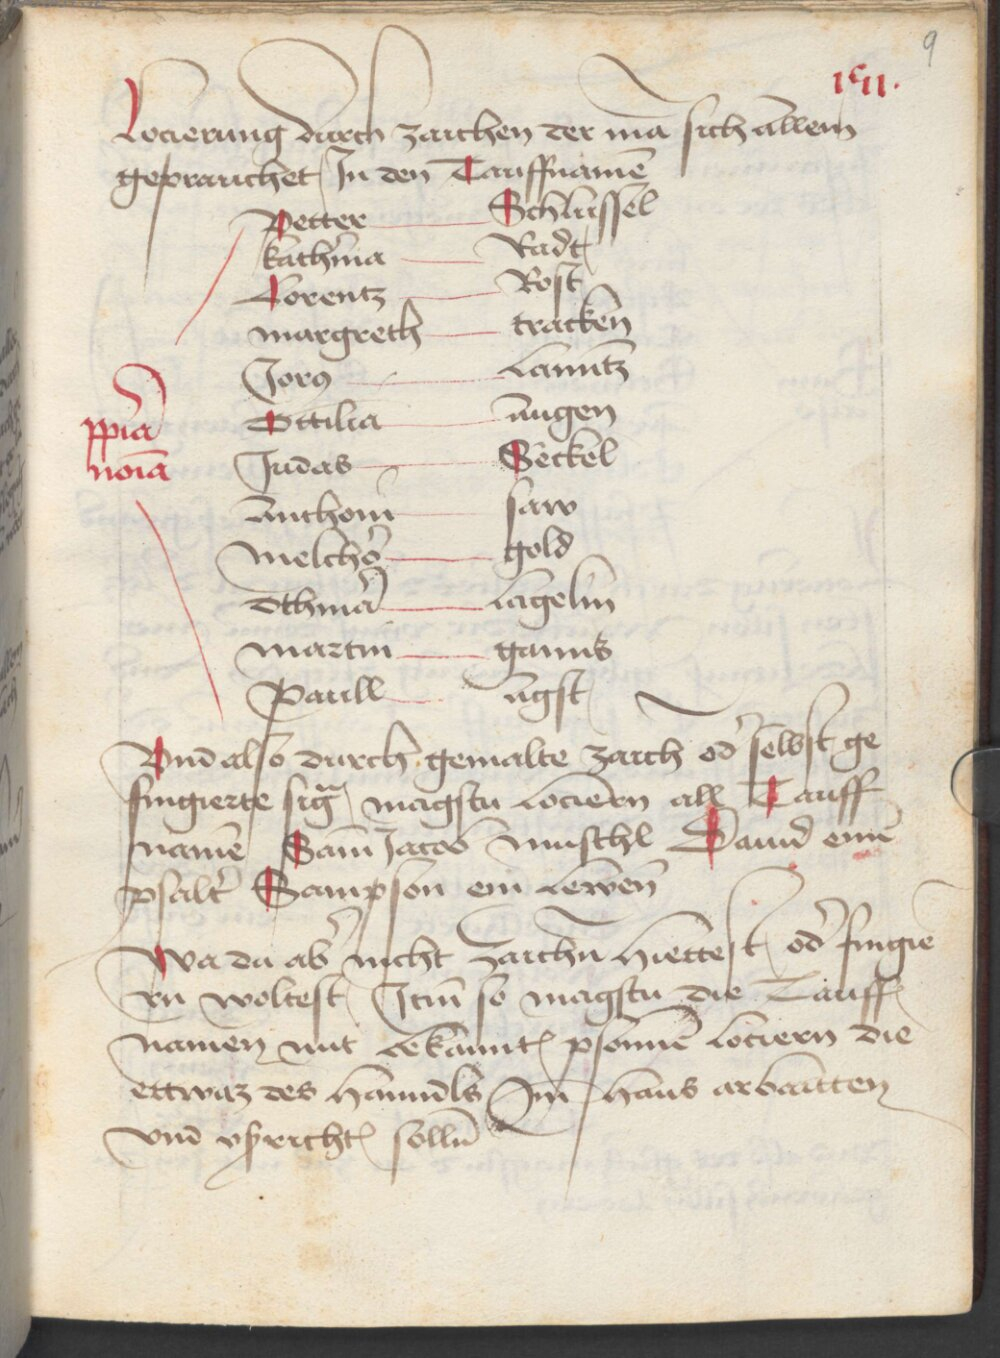 9
Locierung durch zaichen der mā sich allein
geprauchet In den Tauffnamē
Petter Schlüssel
kathrina Radt
Lorentz Rost
margreth tracken
Jorg
Ottilia augen
Judas Seckel
Anthoni saw
melchor gold
Othmar lagelin
martin ganns
Paull
ppria
noīa
Vnd also durch gemalte zaich od selbst ge
fingierte sig magstu lociern all Tauff
namē Sām Jacob muschl Dauid einē
psalt Sampson ein lewen
Wa du ab nicht zaichn hettest od fingie
rn woltest Itm so magstu die Tauff
namen mit bekannt psonnē lociern die
ettwaz des hanndls Im haus arbaitten
vnd vßricht solln